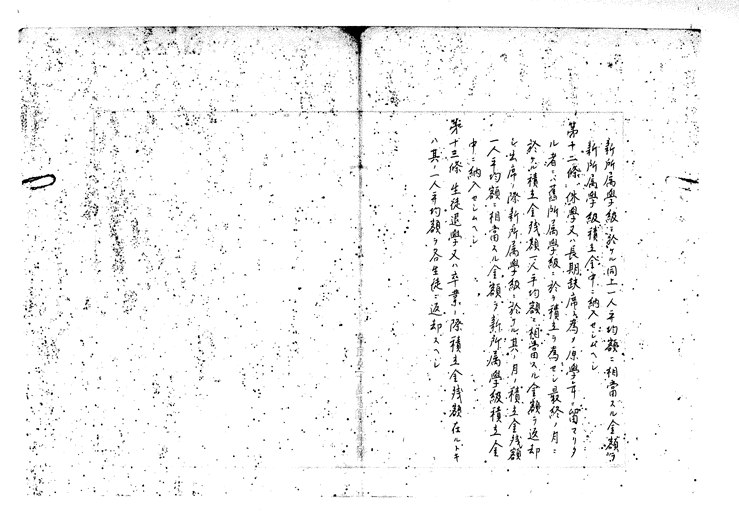 新所属學級ニ於ケル同上一人平均額ニ相當スル金額ヲ
新所属學級積立金中ニ納入セシムヘシ
第十二條 休學又ハ長期缺席ノ為メ原學年ニ留マリタ
ル者ニハ舊所属學級ニ於テ積立ヲ為セシ最終ノ月ニ
於ケル積立金残額一人平均額ニ相當スル金額ヲ返却
シ出席ノ際新所属學級ニ於ケル其ノ月ノ積立金残額
一人平均額ニ相當スル金額ヲ新所属學級積立金
中ニ納入セシムヘシ
第十三條 生徒退學又ハ卒業ノ際積立金残額在ルトキ
ハ其ノ一人平均額ヲ各生徒ニ返却スヘシ